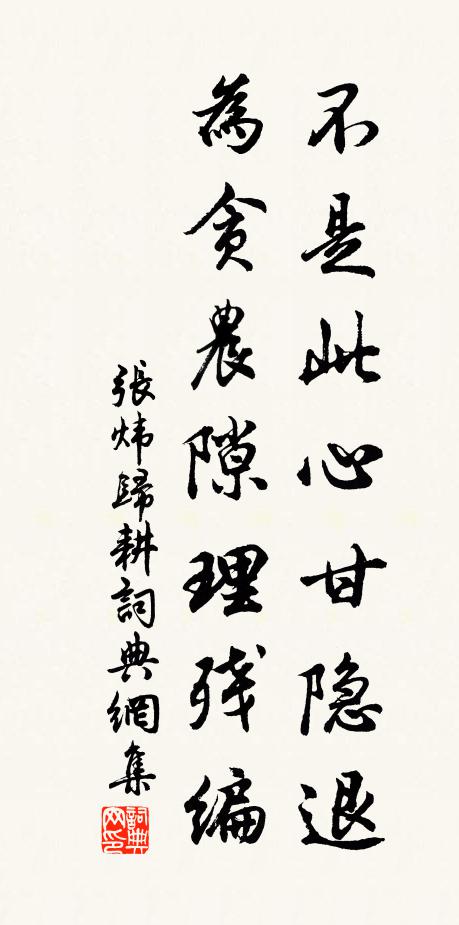 不是此心甘隐退
為貪農隙理残編
張炜歸耕詞典網集
詞典网印